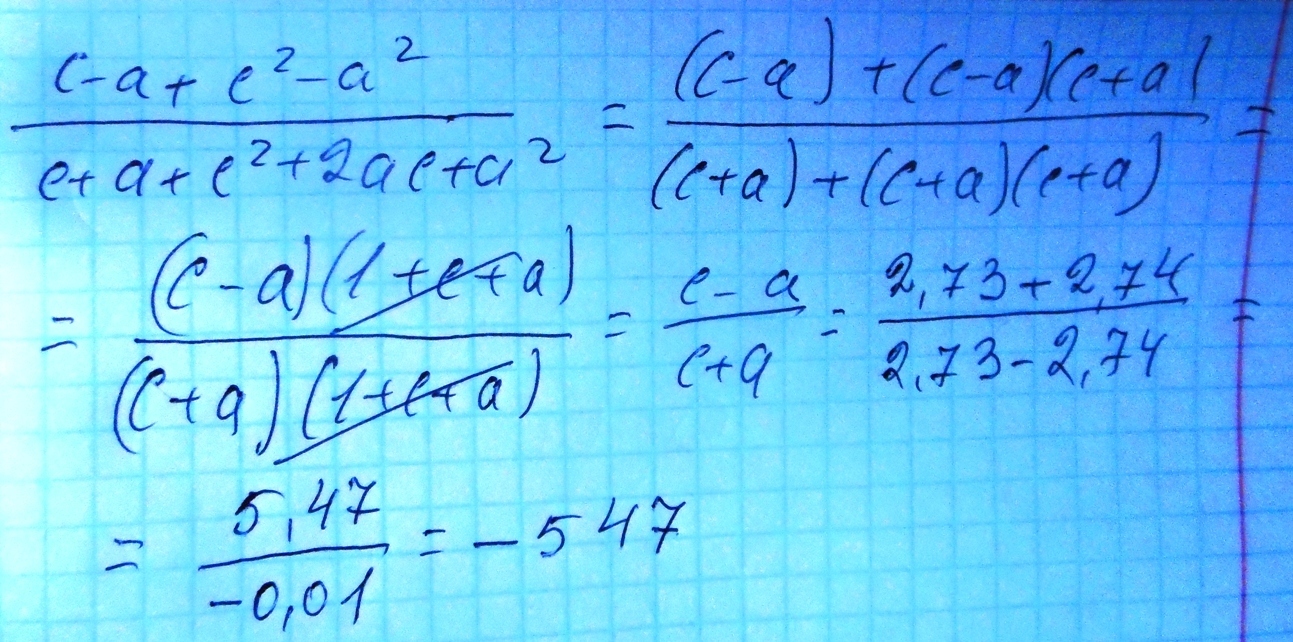 (c-a+c²-a²)/(c+a+c²+2ac+a²) = ((c-a)+(c-a)(c+a))/((c+a)+(c+a)(c+a)) =
= ((c-a)(1+c+a))/((c+a)(1+c+a)) = (c-a)/(c+a) = (2,73+2,74)/(2,73-2,74) =
= 5,47/(-0,01) = -547